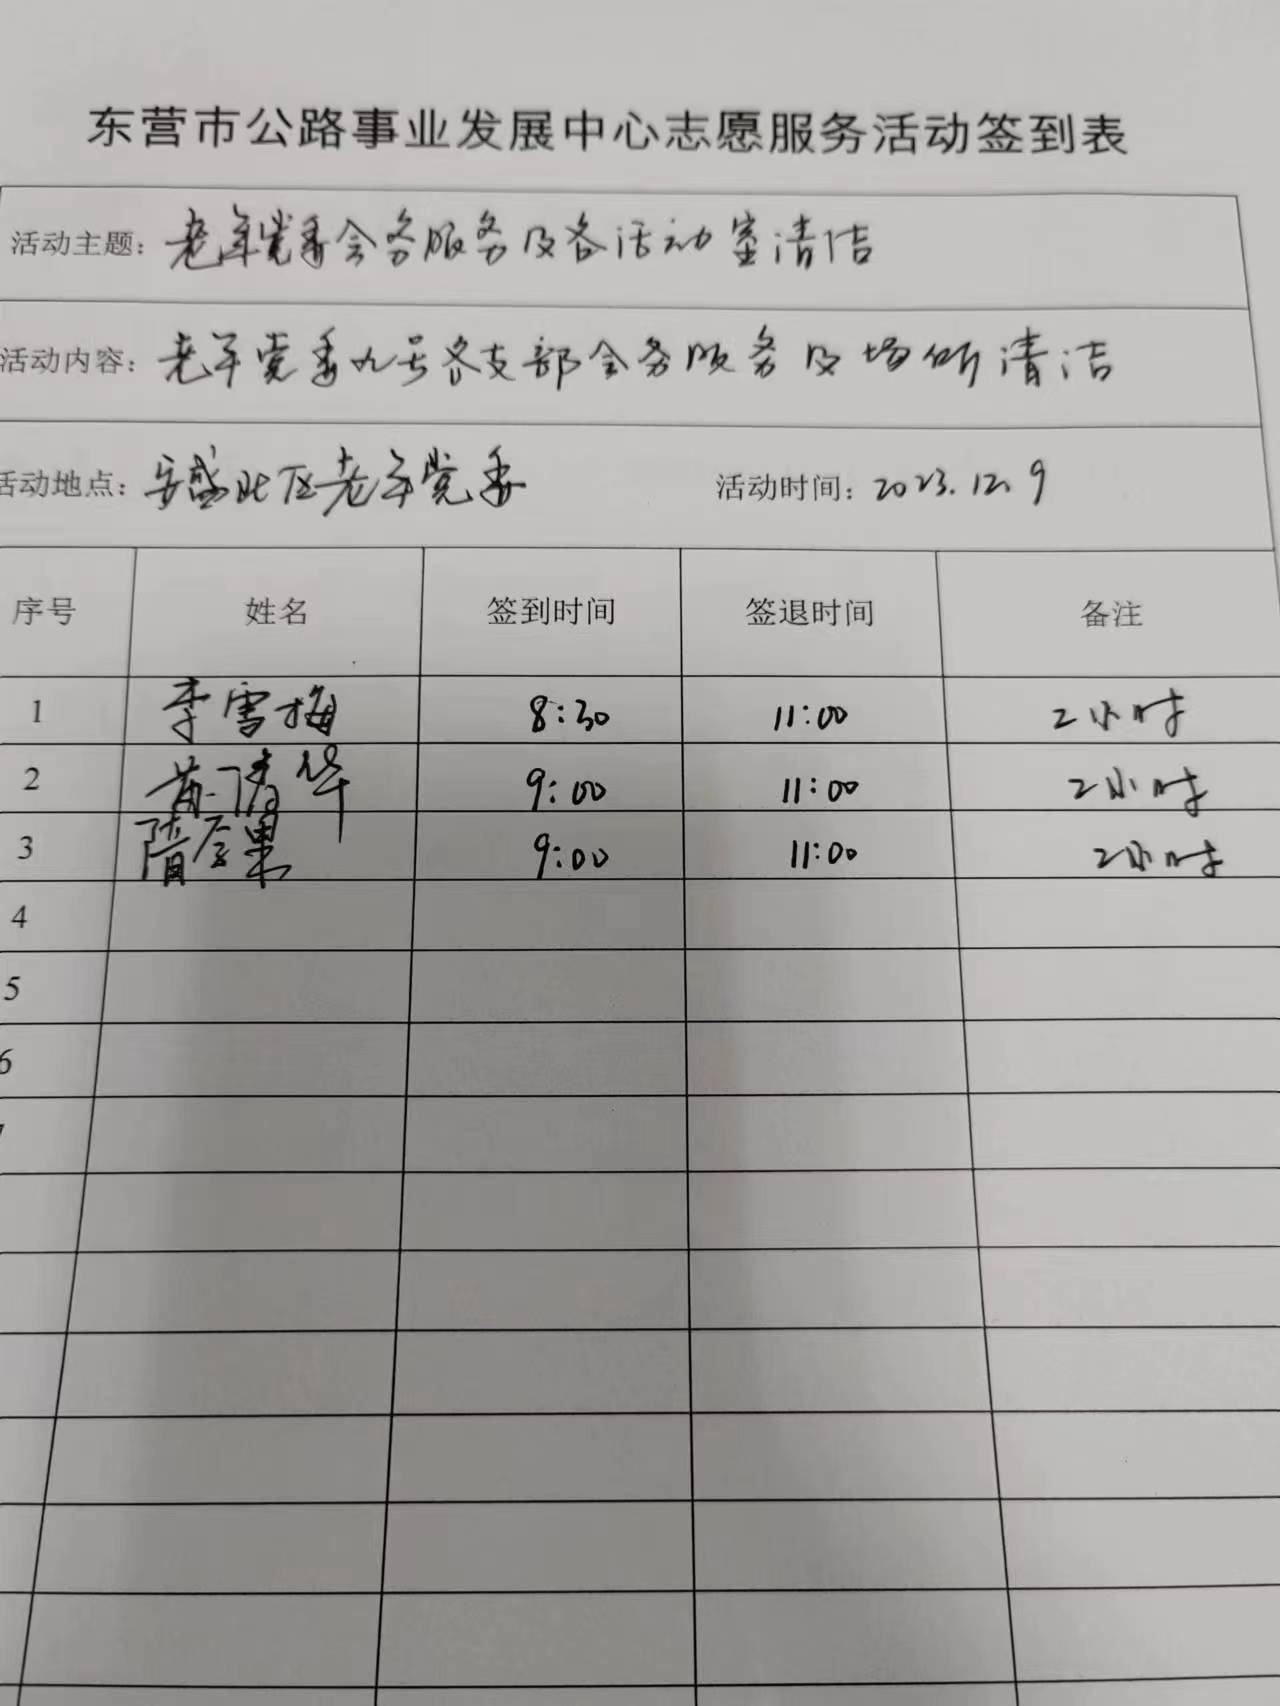 东营市公路事业发展中心志愿服务活动签到表
活动主题：老年党委会务服务及各活动室清洁
活动内容：老年党委九号各支部会务服务及场所清洁
活动地点：安盛北区老年党委 活动时间：2023.12.9
序号 姓名 签到时间 签退时间 备注
1 李雪梅 8:30 11:00 2小时
2 黄清华 9:00 11:00 2小时
3 隋 9:00 11:00 2小时
4
5
6